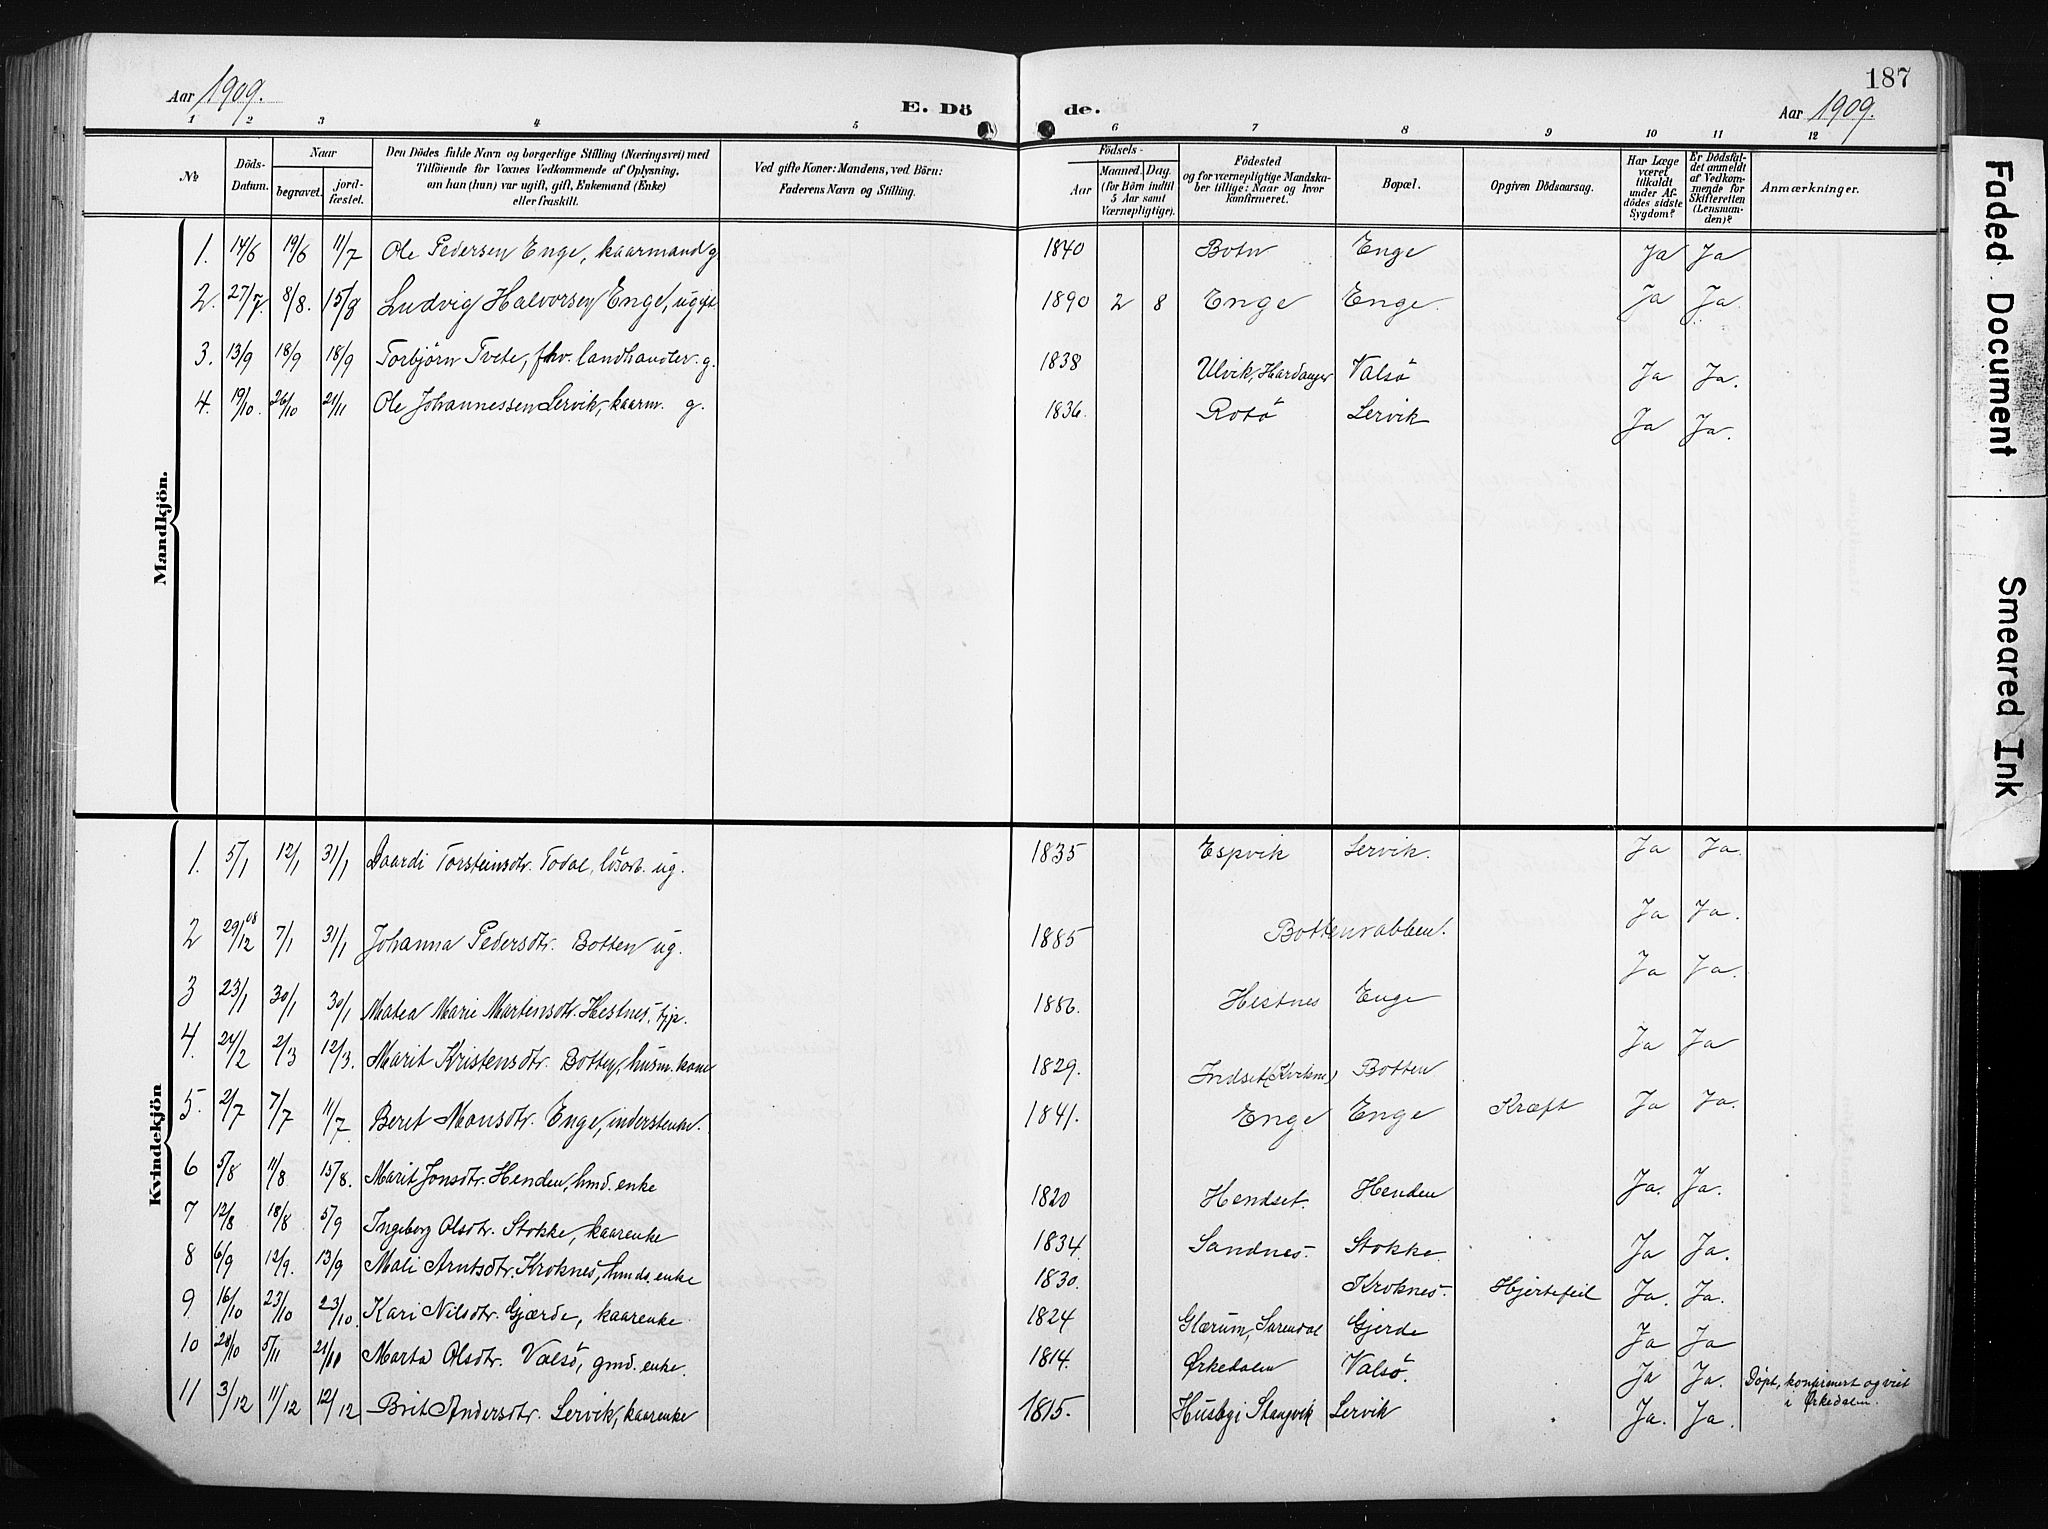 187
Aar 1909. E. Dö de. Aar 1909.
1 2 3 4 5 6 7 8 9 10 11 12
№ Döds-Datum. Naar begravet. jord-fæstet. Den Dödes fulde Navn og borgerlige Stilling (Næringsvei) med Tilföiende for Voxnes Vedkommende af Oplysning, om han (hun) var ugift, gift, Enkemand (Enke) eller fraskilt. Ved gifte Koner: Mandens, ved Börn: Faderens Navn og Stilling. Födsels- Aar Maaned. Dag. (for Börn indtil 5 Aar samt Værnepligtige). Födested og for værnepligtige Mandskaber tillige: Naar og hvor konfirmeret. Bopæl. Opgiven Dödsaarsag. Har Læge været tilkaldt under Afdödes sidste Sygdom? Er Dödsfaldet anmeldt af Vedkommende for Skifteretten (Lensmanden)? Anmærkninger.
Mandkjön.
1. 14/6 19/6 11/7 Ole Pedersen Enge, kaarmand g. 1840 Botn Enge Ja Ja
2. 27/7. 8/8. 15/8 Ludvig Halvorsen Enge, ugift. 1890 2 8 Enge Enge. Ja Ja.
3. 13/9 18/9 18/9 Torbjörn Tvete, fhv. landhandler. g. 1838 Ulvik, Hardanger Valsö Ja Ja.
4. 19/10. 26/10 21/11 Ole Johannessen Lervik, kaarm. g. 1836. Rotö Lervik Ja Ja.
Kvindekjön
1. 5/1 12/1 31/1 Baardi Torsteinsdtr. Todal, lösarb. ug. 1835 Espvik Lervik. Ja Ja.
2 29/12 08 7/1 31/1 Johanna Pedersdtr. Botten ug. 1885 Bottenrabben. Ja Ja.
3 23/1 30/1 30/1 Matea Marie Martensdtr. Hestnes, tjp. 1886. Hestnes Enge Ja Ja.
4. 24/2 2/3 12/3. Marit Kristensdtr. Botten, husm. kone 1829. Indset (Kvikne) Botten Ja Ja
5. 2/7 7/7 11/7. Beret Monsdtr. Enge, inderstenke. 1841. Enge Enge Kræft Ja Ja.
6 5/8 11/8 15/8. Marit Jonsdtr. Henden, hmd. enke 1820 Hendset. Henden Ja. Ja.
7 12/8 18/8 5/9 Ingeborg Olsdtr. Stokke, kaarenke 1834. Sandnes. Stokke. Ja Ja.
8 6/9 12/9. 13/9 Mali Arntsdtr. Kroknes, hmds. enke 1830. Kroknes. Hjertefeil Ja. Ja.
9 16/10 23/10 23/10. Kari Nilsdtr. Gjærde, kaarenke 1824 Glærum, Surendal Gjerde Ja Ja
10 28/10 5/11 21/11 Marta Olsdtr. Valsö, gmd. enke. 1814. Ørkedalen Valsö. Ja Ja. Döpt, konfirmert og viet i Ørkedalen.
11 3/12 11/12 12/12 Brit Andersdtr. Lervik, kaarenke 1815. Husbyi Stangvik Lervik Ja. Ja.
Faded Document
Smeared Ink